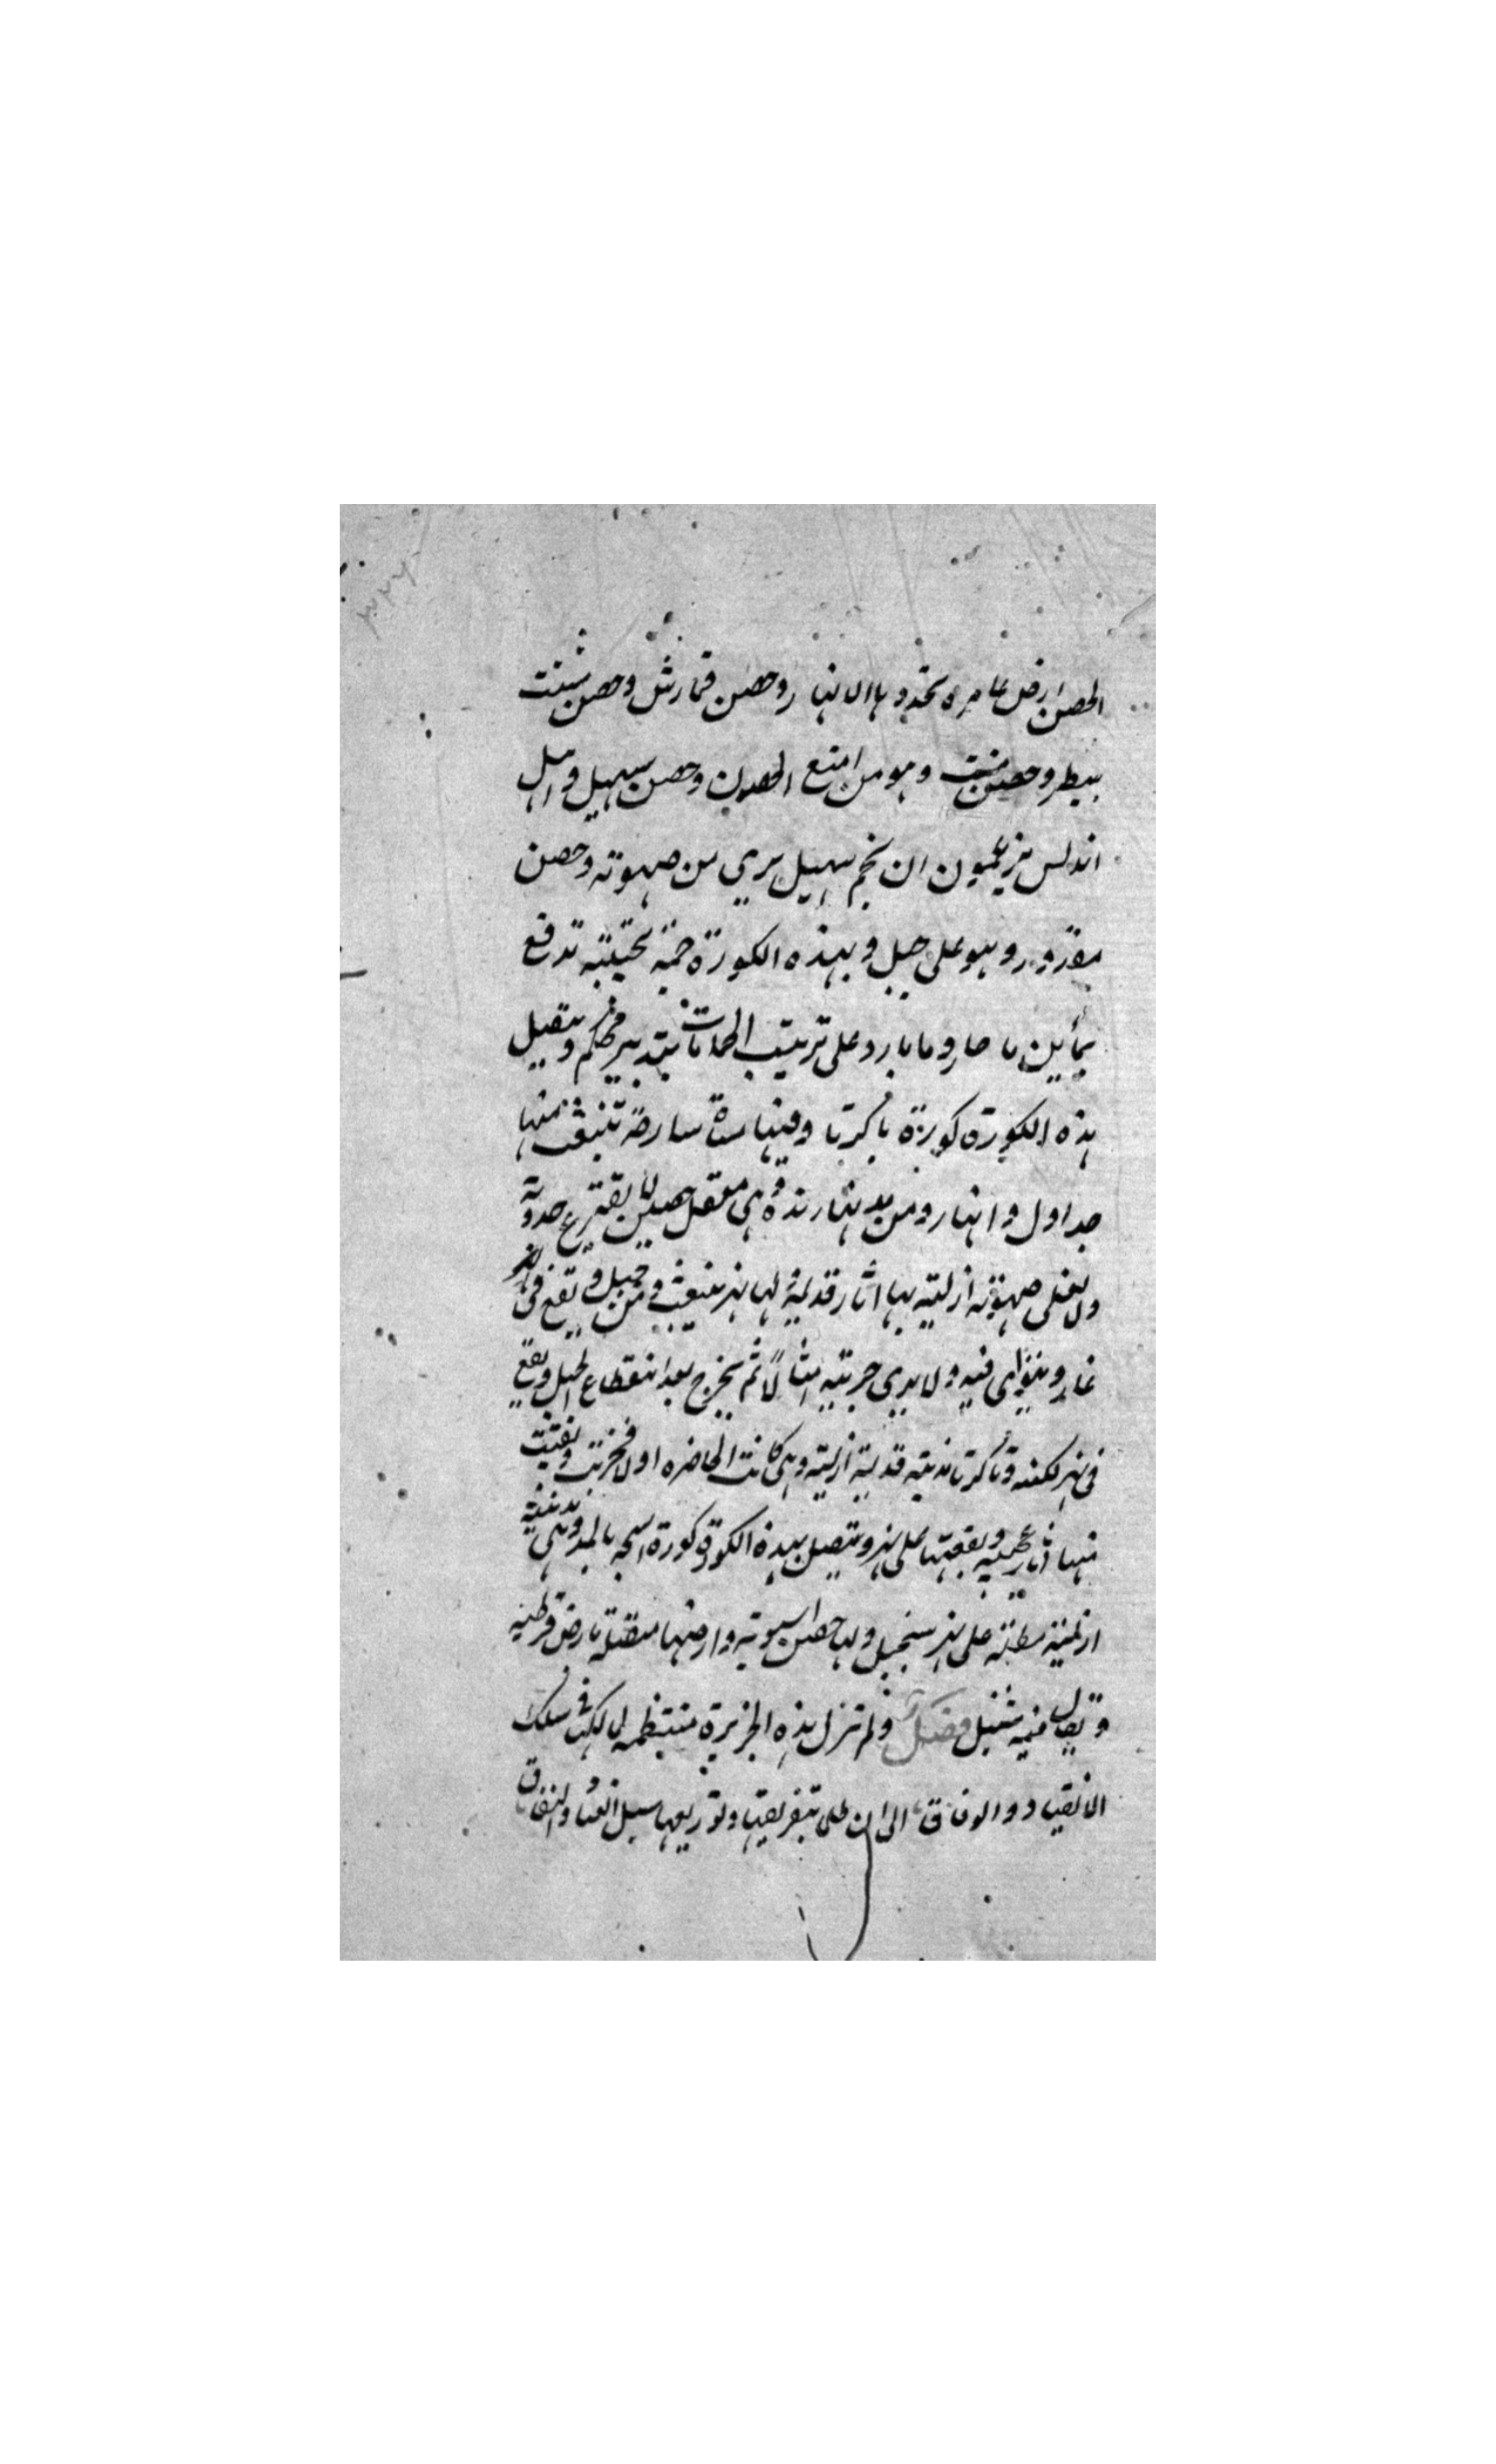 الحصن ارض عامره تخددها الانهار وحصن قمارش وحصن شنت
بيطر وحصن منت وهو من امنع الحصون وحصن سهيل واهل
اندلس يزعمون ان نجم سهيل يرى من صهوته وحصن
مقرور وهو على جبل وبهذه الكورة حمة تدفع
بمأين ما حار وما بارد على ترتيب الحمامات بتدبير محكم ويتصل
بهذه الكورة كورة تاكرنا وفيها تنبعث منها
جداول وانهار ومن مدينها رندة وهي معقل حصين لا يقترع حدوته
ولا يعلى صهوته ازلية بها اثار قديمة لها نهر ينبعث من جبل ويقع في
غار ويتوارى فيه ولا يدرى جريته امثالا ثم يخرج بعد انقطاع الجبل ويقع
في نهر لكنه وتاكرنا مدينة قديمة ازلية وهي كانت الحاضره اولا فخربت وبقيت
منها اثار عجيبه وبقعتها على نهر ويتصل بهذه الكورة كورة استجه بالمد وهي مدينة
ازلية مطلة على نهر سنجيل ولها حصن اسبونه وارضها متصلة بارض قرطبه
ويقال فيه شنيل ولم تزل هذه الجزيرة منتظمه لمالكها في سلك
الانقياد والوفاق الى ان طما بتفريقها وتوزيعها سيل العناد والنفاق